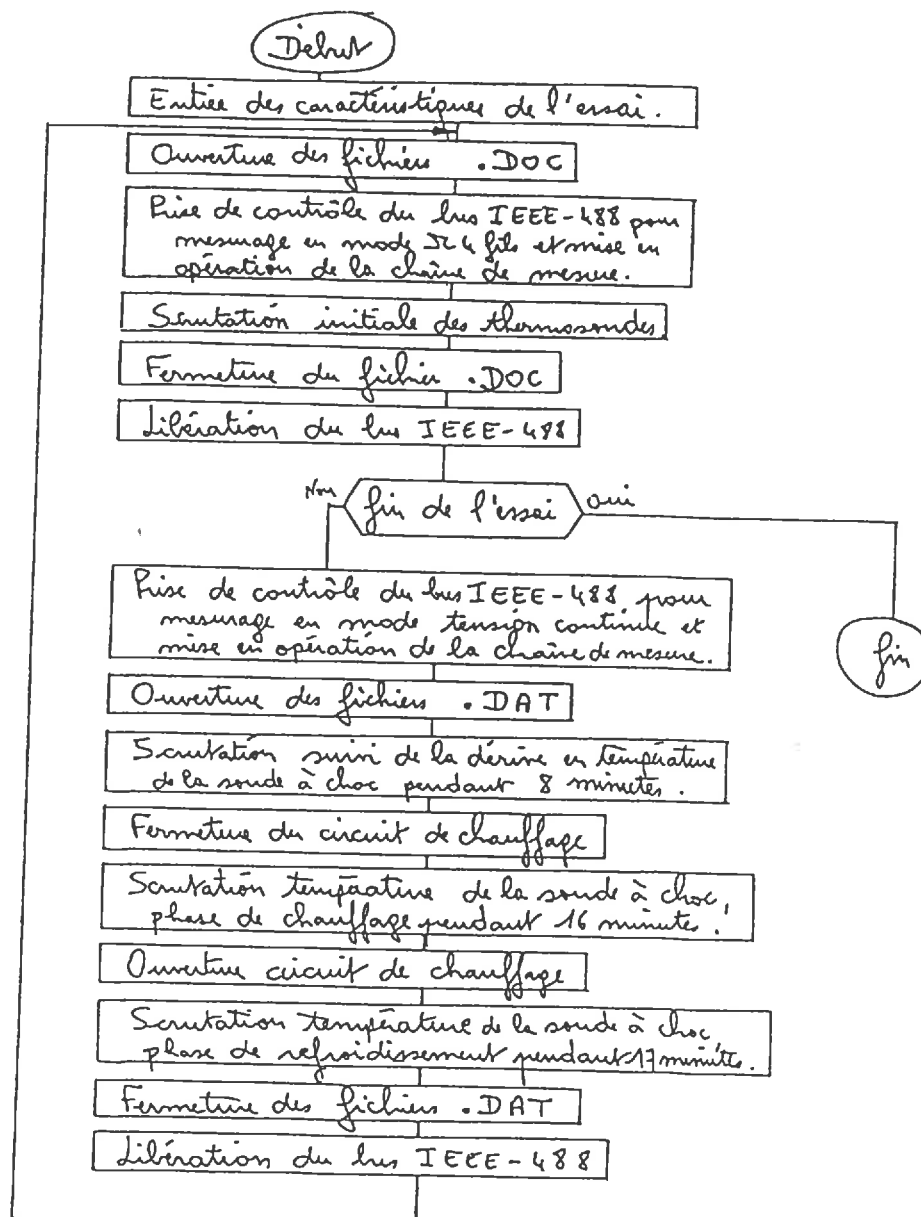 Début
Entrée des caractéristiques de l'essai.
Ouverture des fichiers .DOC
Prise de contrôle du bus IEEE-488 pour
mesurage en mode Ω 4 fils et mise en
opération de la chaîne de mesure.
Scrutation initiale des thermosondes
Fermeture du fichier .DOC
Libération du bus IEEE-488
Non
fin de l'essai
oui
Prise de contrôle du bus IEEE-488 pour
mesurage en mode tension continue et
mise en opération de la chaîne de mesure.
fin
Ouverture des fichiers .DAT
Scrutation suivi de la dérive en température
de la sonde à choc pendant 8 minutes.
Fermeture du circuit de chauffage
Scrutation température de la sonde à choc,
phase de chauffage pendant 16 minutes.
Ouverture circuit de chauffage
Scrutation température de la sonde à choc,
phase de refroidissement pendant 17 minutes.
Fermeture des fichiers .DAT
Libération du bus IEEE-488